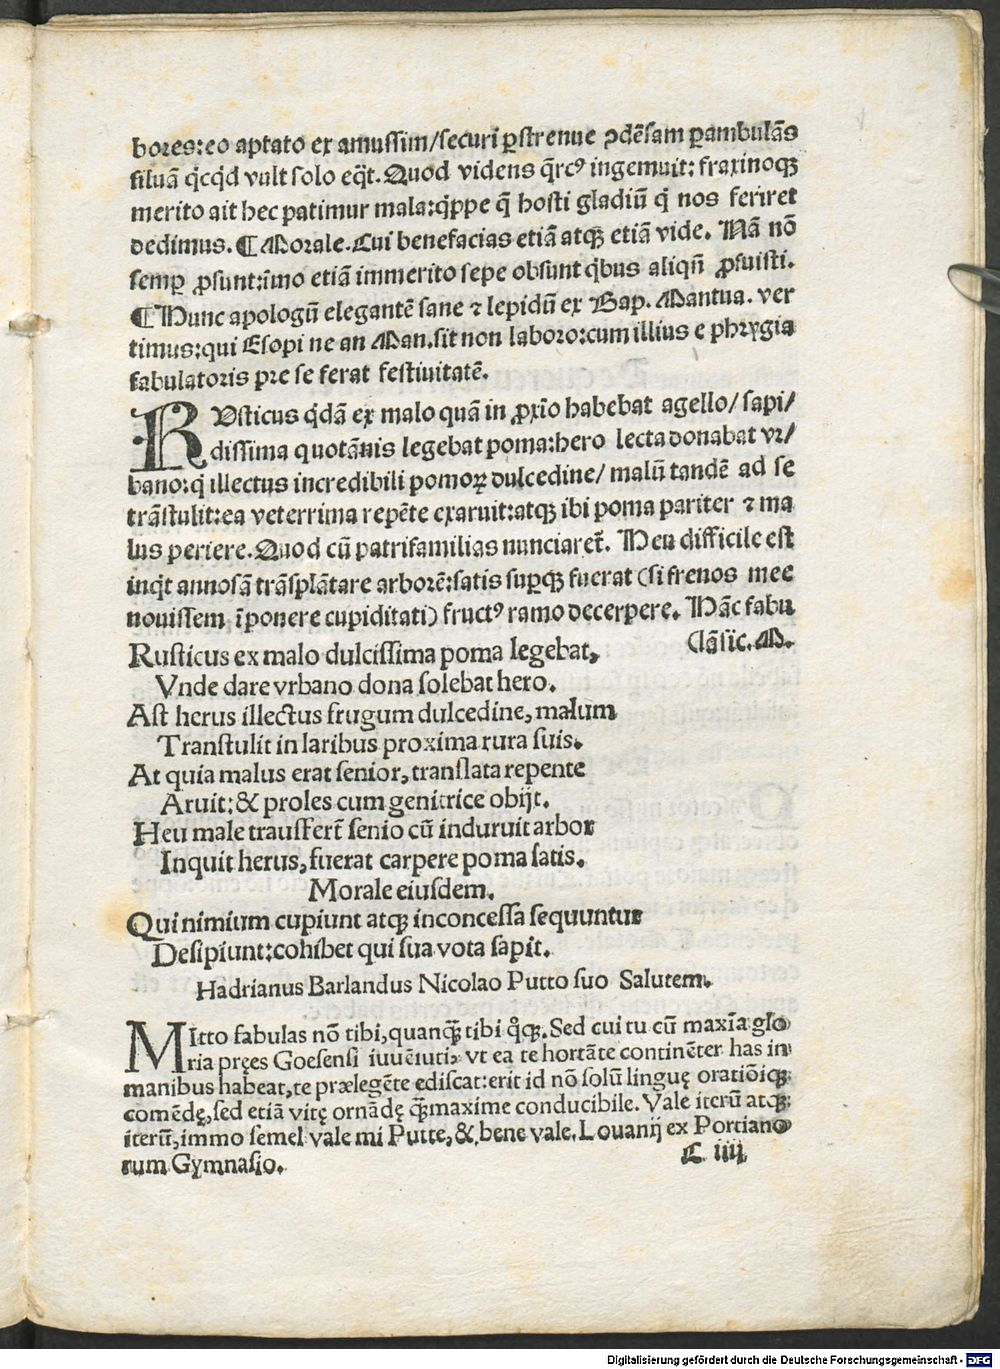 bores:eo aptato ex amussim/securi p̱strenue ꝯdēsam p̱ambulās
siluā qͥcqͥd vult solo eq̄t. Quod videns q̄rcꝰ ingemuit: fraxinoqꝫ
merito ait hec patimur mala:qͥppe q̄ hosti gladiū qͥ nos feriret
dedimus. ¶ Morale. Cui benefacias etiā atqꝫ etiā vide. Nā nō
semꝑ ꝓsunt:īmo etiā immerito sepe obsunt qͥbus aliqn̄ ꝓfuisti.
¶ Nunc apologū elegantē sane ⁊ lepidū ex Bap. Mantua. ver
timus:qui Esopi ne an Man.sit non laboro:cum illius e phrygia
fabulatoris pre se ferat festiuitatē.
RVsticus qͥdā ex malo quā in ꝓxīo habebat agello/ sapi/
dissima quotānis legebat poma:hero lecta donabat vr/
bano:qͥ illectus incredibili pomoꝝ dulcedine/ malū tandē ad se
trāstulit:ea veterrima repēte exaruit:atqꝫ ibi poma pariter ⁊ ma
lus periere. Quod cū patrifamilias nunciaret̄. Heu difficile est
inqͥt annosā trāsplātare arborē:satis supꝫqꝫ fuerat (si frenos mee
nouissem īponere cupiditati) fructꝰ ramo decerpere. Hāc fabu
Rusticus ex malo dulcissima poma legebat, lā sic. M.
Vnde dare vrbano dona solebat hero.
Ast herus illectus frugum dulcedine, malum
Transtulit in laribus proxima rura suis.
At quia malus erat senior, translata repente
Aruit: & proles cum genitrice obijt.
Heu male transfert̄ senio cū induruit arbor
Inquit herus, fuerat carpere poma satis.
Morale eiusdem.
Qui nimium cupiunt atqꝫ inconcessa sequuntur
Desipiunt:cohibet qui sua vota sapit.
Hadrianus Barlandus Nicolao Putto suo Salutem.
MItto fabulas nō tibi, quanqꝫ̄ tibi qͦqꝫ. Sed cui tu cū maxīa glo
ria pręes Goesensi iuuētuti, vt ea te hortāte continēter has in
manibus habeat, te prælegēte ediscat:erit id nō solū linguę oratiōiqꝫ
comēdę, sed etiā vitę ornādę qꝫ̄maxime conducibile. Vale iterū atqꝫ
iterū, immo semel vale mi Putte, & bene vale. Louanij ex Portiano
rum Gymnasio. C iiij
Digitalisierung gefördert durch die Deutsche Forschungsgemeinschaft - DFG